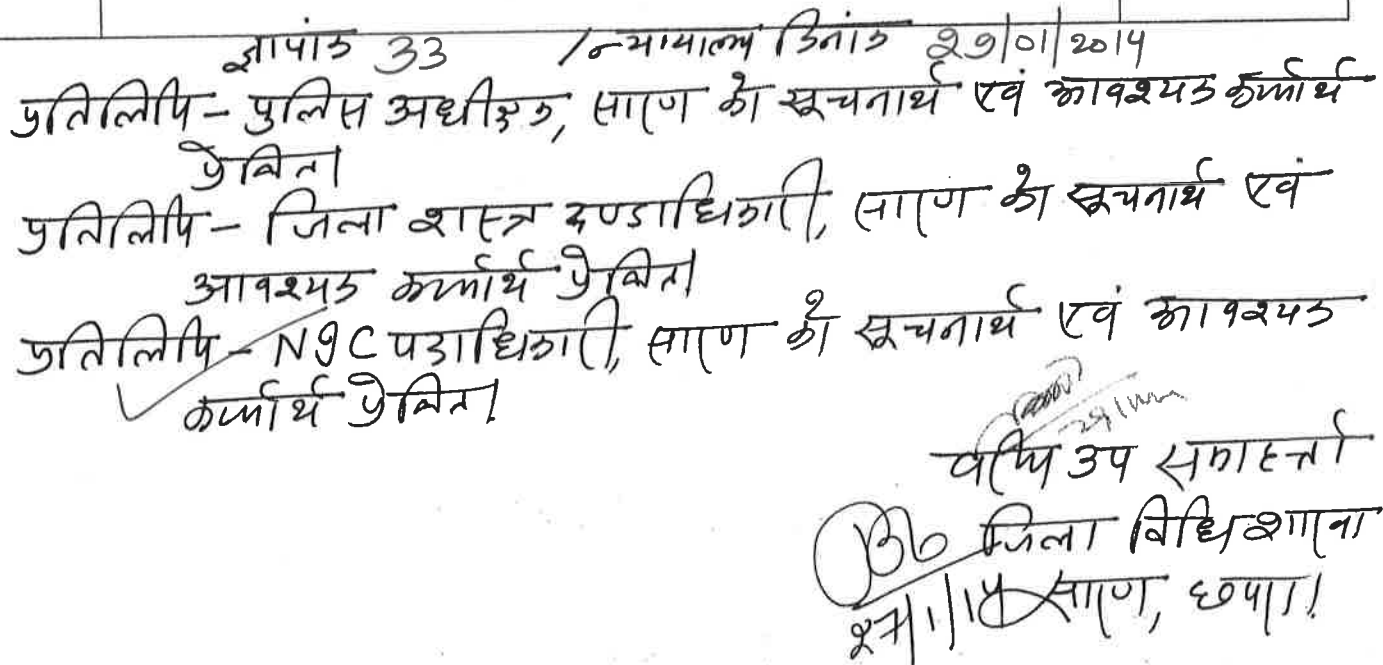 ज्ञापांक 33 /न्यायालय दिनांक 29/01/2014
प्रतिलिपि - पुलिस अधीक्षक, सारण को सूचनार्थ एवं आवश्यक कार्यार्थ
प्रेषित।
प्रतिलिपि - जिला शस्त्र दण्डाधिकारी, सारण को सूचनार्थ एवं
आवश्यक कार्यार्थ प्रेषित।
प्रतिलिपि - NIC पदाधिकारी, सारण को सूचनार्थ एवं आवश्यक
कार्यार्थ प्रेषित।
वरीय उप समाहर्त्ता
जिला विधि शाखा
27/1/14 सारण, छपरा।